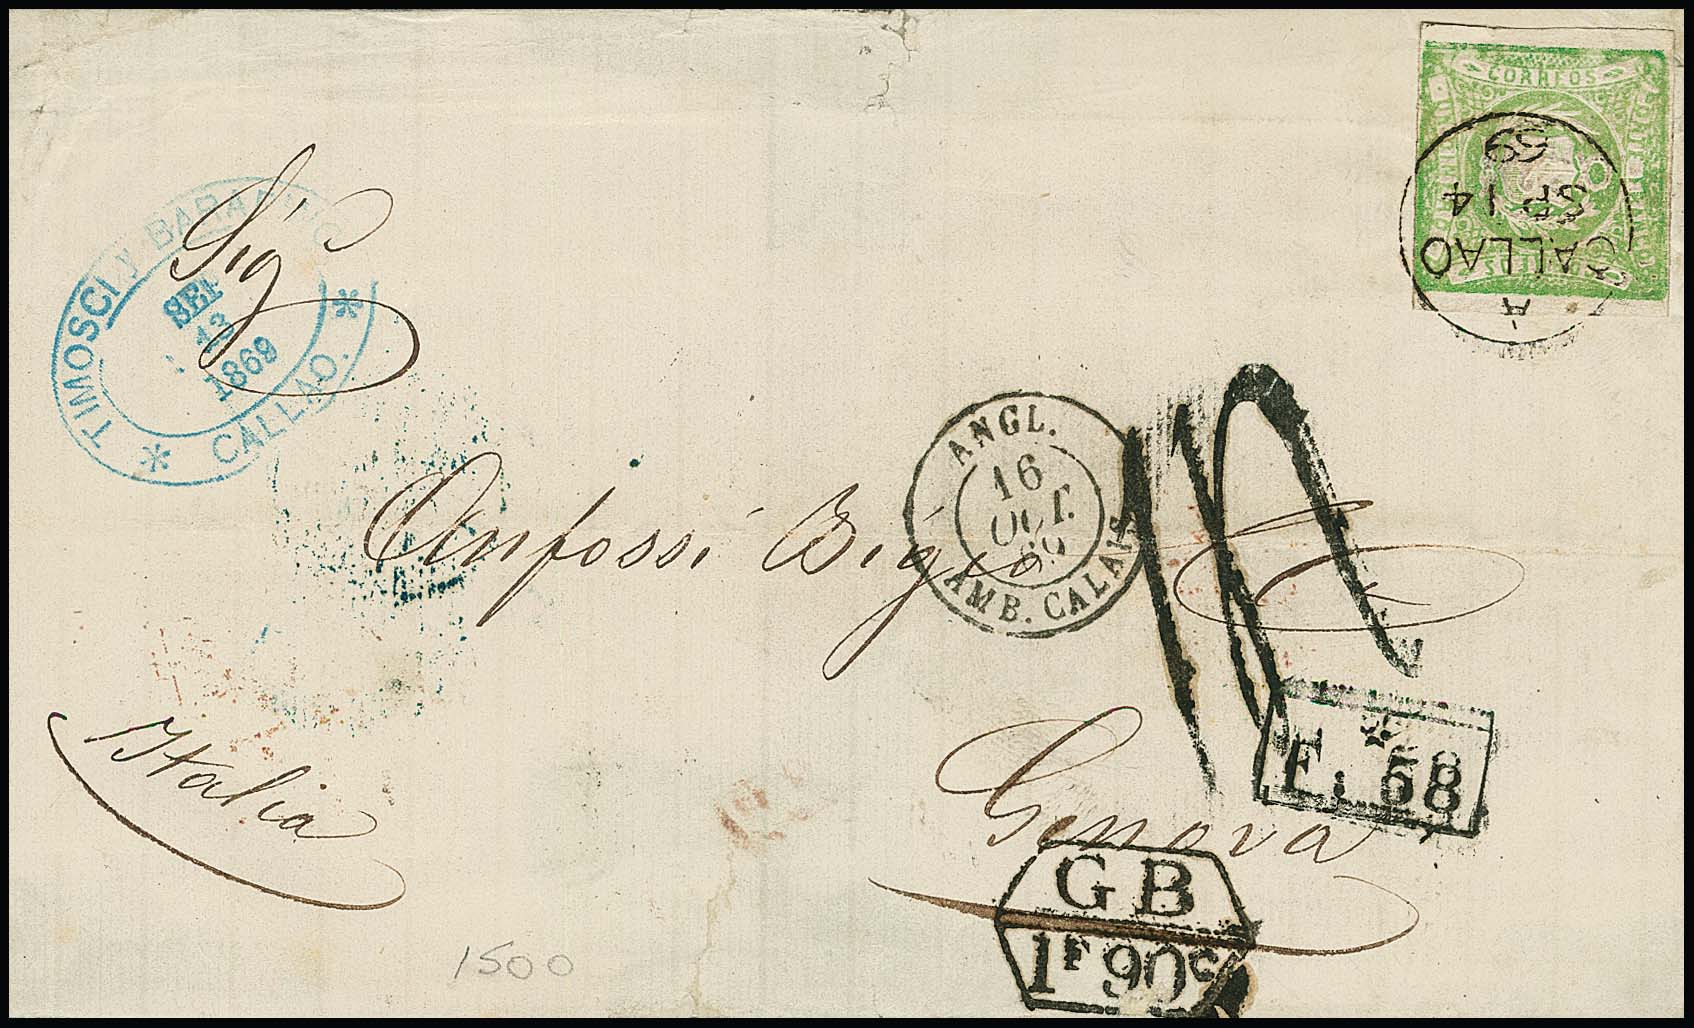 CORREOS
A
CALLAO
SP 14
69
TIMOSCI y
SET
13
1869
CALLAO.
Sig
ANGL.
16
OCT.
AMB. CALAIS
Anfossi Bigio
Italia
F. 58
Genova
GB
1F 90c
1500